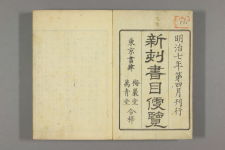 明治七年第四月刊行
新刻書目便覽
東京書肆
梅巖堂
萬青堂
合梓